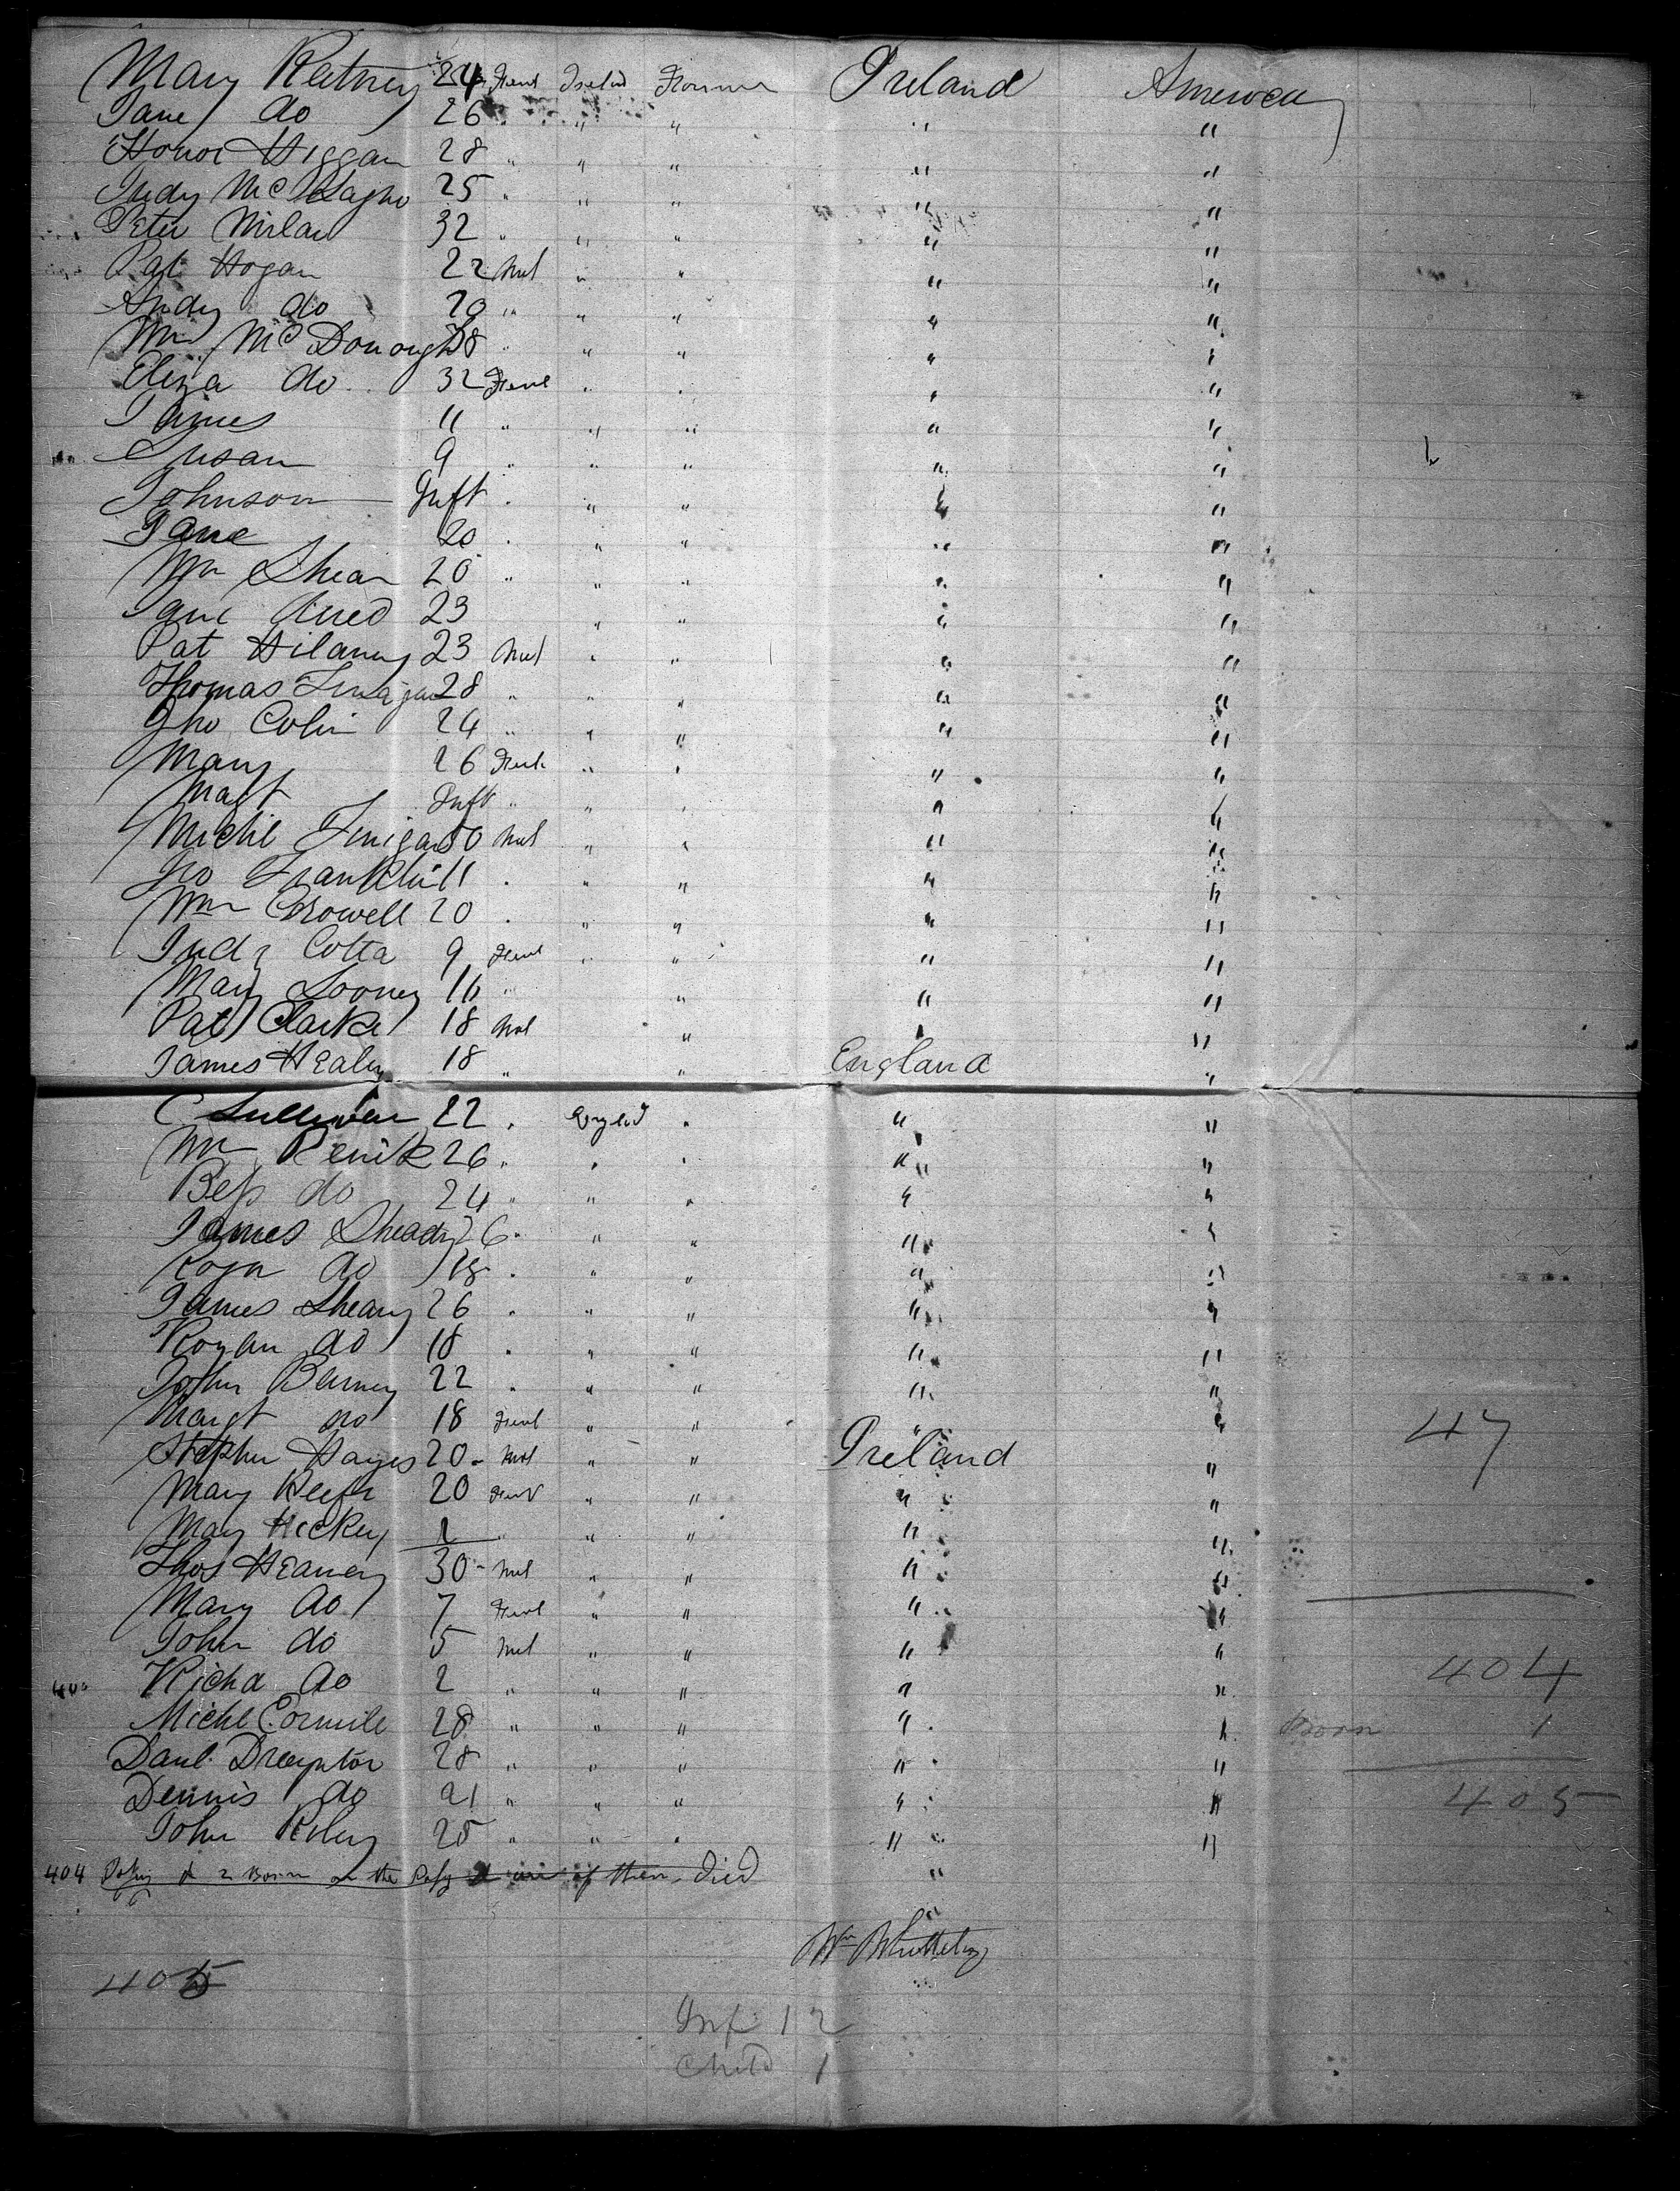 Mary Ratney 24 Feml Ireld Farmer Ireland America
Jane do 26 " " " " "
Honor Higgan 28 " " " " "
Judy Mc 25 " " " " "
Peter Milan 32 " " " " "
Pat Hogan 22 Mal " " " "
Andy do 20 " " " " "
Wm McDonough 38 " " " " "
Eliza do 32 Feml " " " "
James 11 " " " " "
Susan 9 " " " " "
Johnson Inft " " " " "
Jane 20 " " " " "
Wm Shean 20 " " " " "
Jane 23 " " " "
Pat Hilaney 23 Mal " " " "
Thomas 28 " " " " "
Jno Colin 24 " " " " "
Mary 26 Feml " " " "
Magt Inft " " " " "
Michl Finigan 50 Mal " " " "
Jno Franklin 11 " " " " "
Wm Crowell 20 " " " " "
Judy Cotta 9 Feml " " " "
Mary Looney 16 " " " "
Pat Clarke 18 Mal " " "
James Healey 18 " " England "
C Sullivan 22 " Engld " " "
Wm Renik 26 " " " " "
Bess do 24 " " " " "
James Sheady 26 " " " " "
do 18 " " " " "
James Sheany 26 " " " " "
Rogan do 18 " " " " "
John Barney 22 " " " " "
Margt do 18 Feml " " " " 47
Stephen Hayes 20 - Mal " " Ireland "
Mary Keefe 20 Feml " " " "
Mary Hickey 1 " " " " "
Thos Heaney 30 - Mal " " " "
Mary do 7 Feml " " " "
John do 5 Mal " " " "
400 Richd do 2 " " " " " 404
Michl Cormile 28 " " " " " Born 1
Danl 28 " " " " "
Dennis do 21 " " " " " 405
John Riley 25 " " " " "
404 2 Born on the of them Died "
Wm
405
Inf 12
Child 1